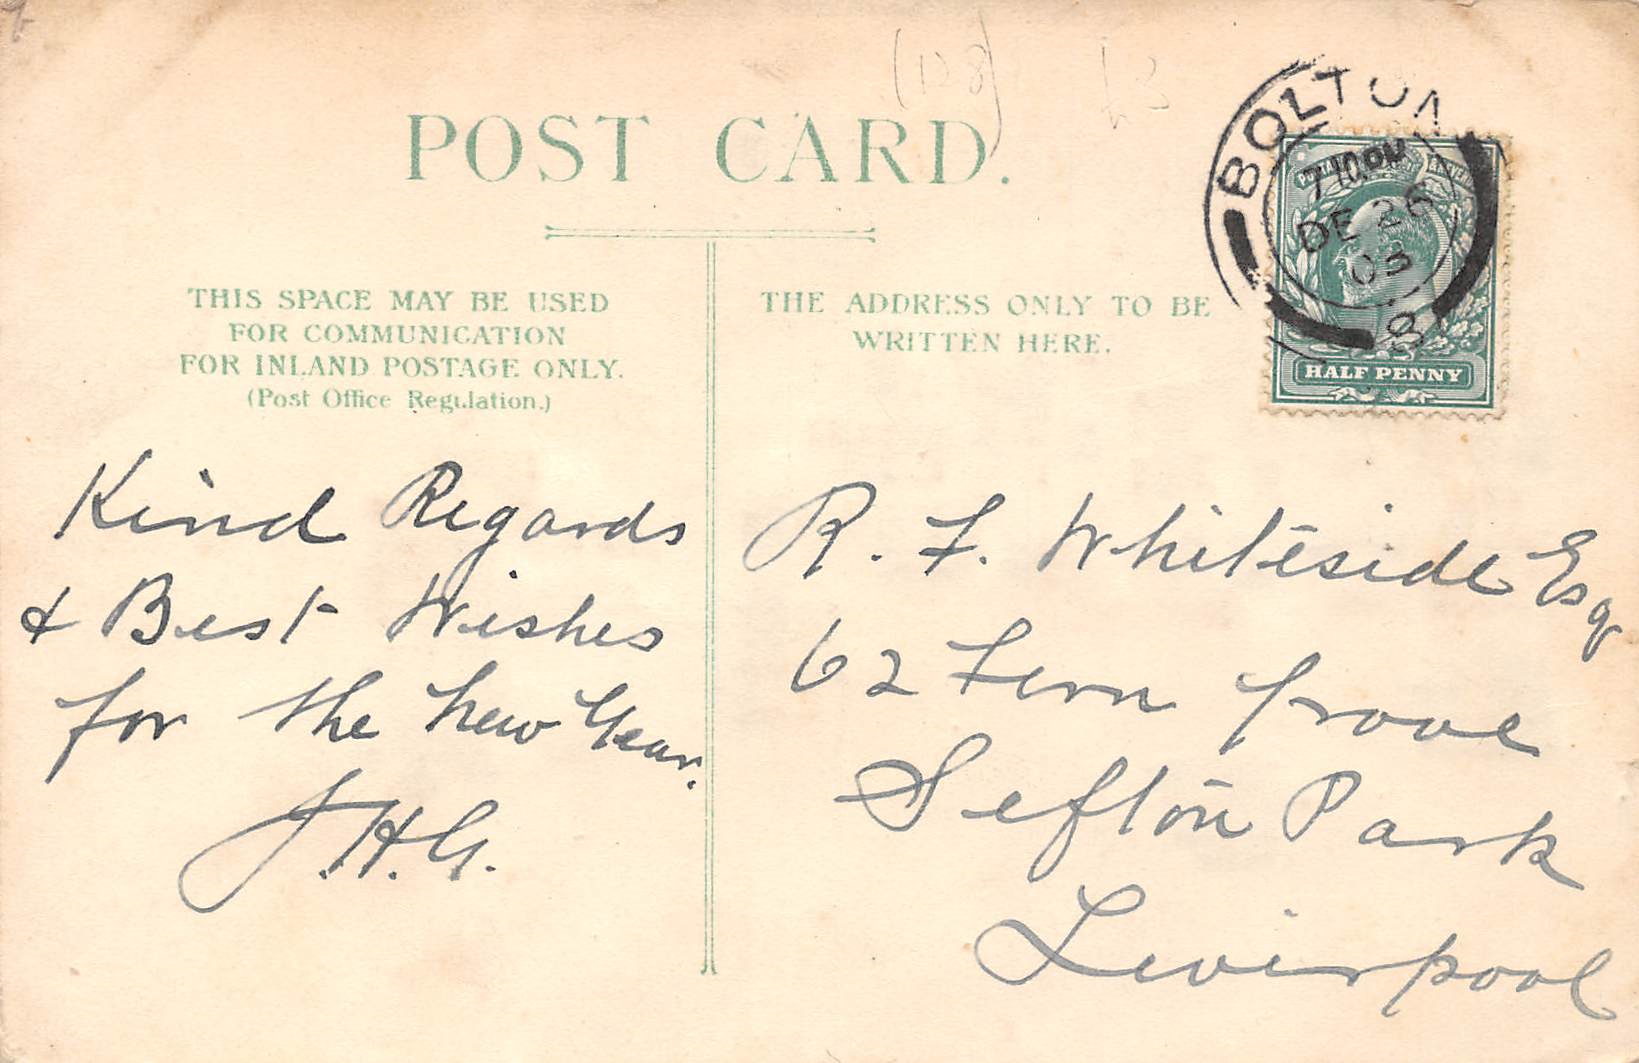 (128) £3
POST CARD.
THIS SPACE MAY BE USED
FOR COMMUNICATION
FOR INLAND POSTAGE ONLY.
(Post Office Regulation.)
THE ADDRESS ONLY TO BE
WRITTEN HERE.
BOLTON
7 10 PM
DE 26
03
8
HALF PENNY
Kind Regards
& Best Wishes
for the New Year.
J.H.G.
R. F. Whiteside Esq
62 Fern grove
Sefton Park
Liverpool